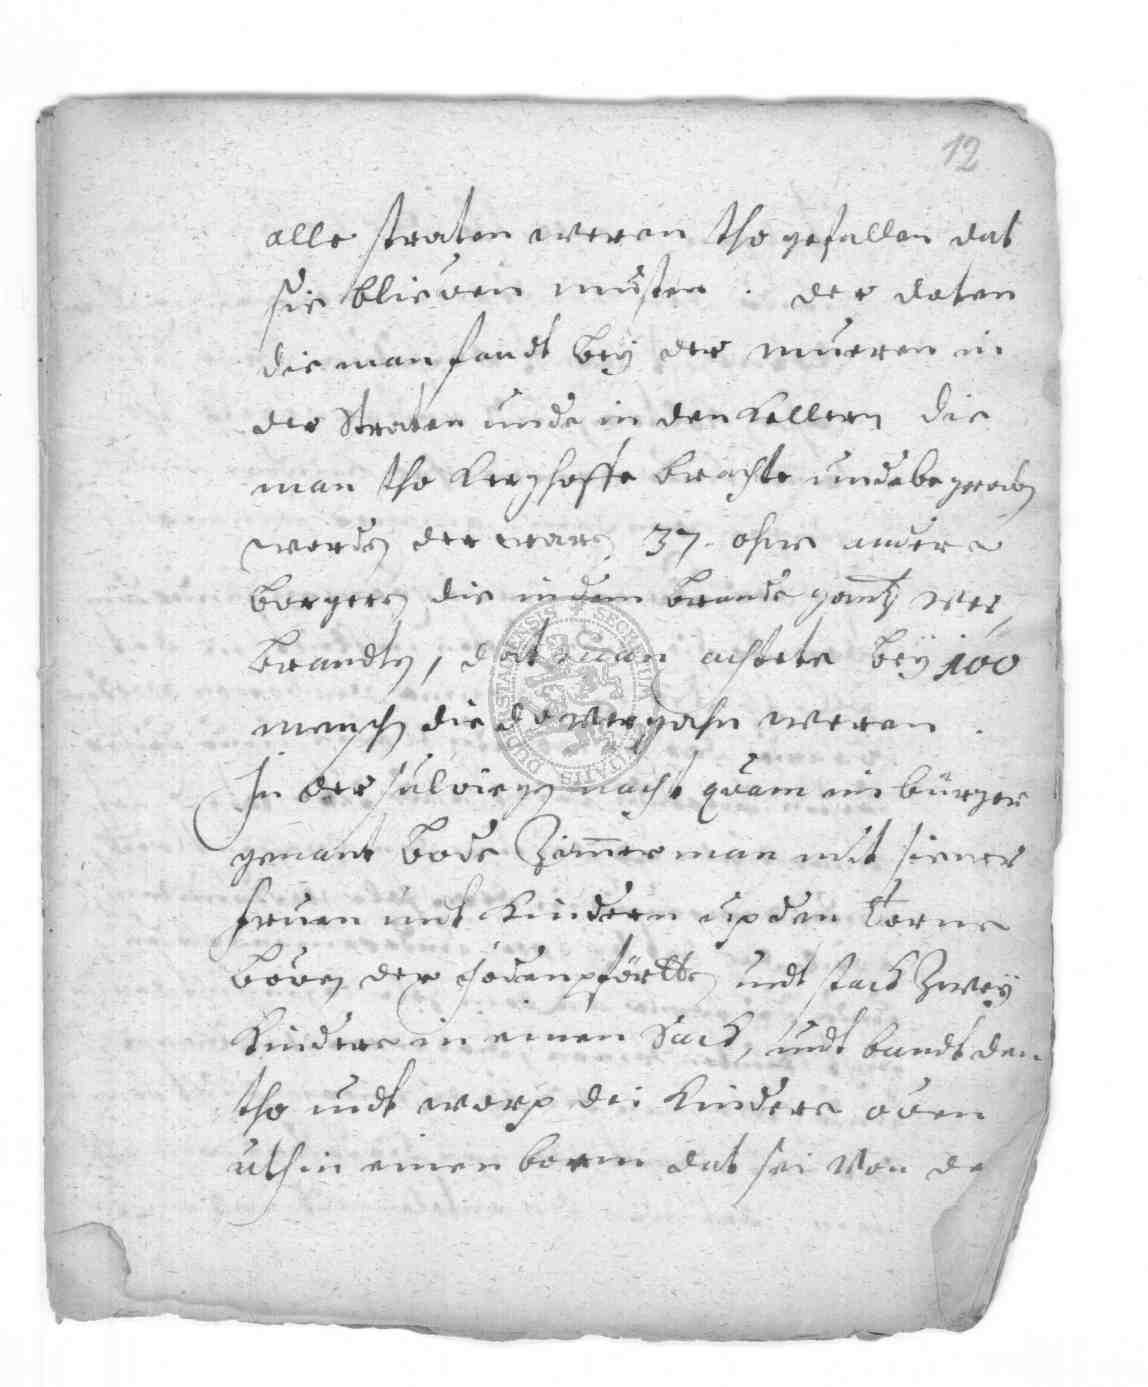 12
alle straten weren tho gefallen dat
sie blieven musten. der doten
die man fandt bey der mueren in
der Straten unde in den Kellern die
man tho Kerghoffe brachte unde begraben
worden der waren 37. ohne andere
borgers die in dem brande gantz ver,
brandten, dat man achtete bey 100
menschen die do vergahn weren.
In der sulvigen nacht quam ein bürger
genant Bode Zimmerman mit siener
fruen undt Kindern up den Torne
boven der Jodenpforten undt stack Zwey
Kindere in einen Sack, undt bandt den
tho undt worp dei Kindere oven
uth in einen born dat sei von de